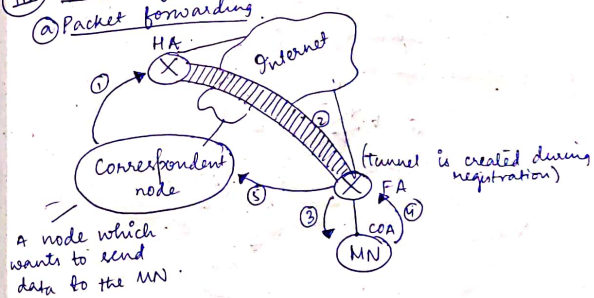 (a) Packet forwarding
HA
Internet
1
2
Correspondent
node
(tunnel is created during
registration)
FA
5
3
4
COA
MN
A node which
wants to send
data to the MN.